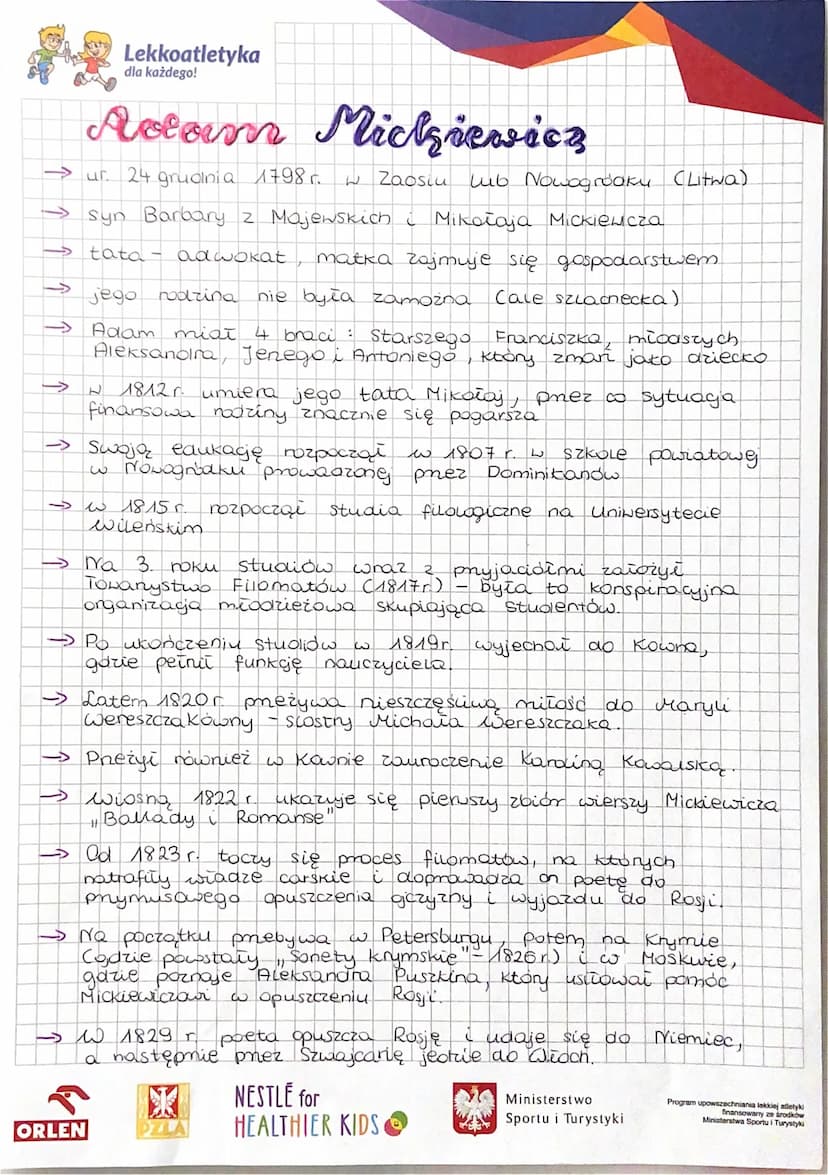 Lekkoatletyka
dla każdego!
Adam Mickiewicz
→ ur. 24 grudnia 1798 r. w Zaosiu lub Nowogródku (Litwa)
→ syn Barbary z Majewskich i Mikołaja Mickiewicza
→ tata - adwokat, matka zajmuje się gospodarstwem
→ jego rodzina nie była zamożna (ale szlachecka)
→ Adam miał 4 braci : starszego Franciszka, młodszych
Aleksandra, Jerzego i Antoniego, który zmarł jako dziecko
→ W 1812 r. umiera jego tata Mikołaj, przez co sytuacja
finansowa rodziny znacznie się pogarsza
→ Swoją edukację rozpoczął w 1807 r. w szkole powiatowej
w Nowogródku prowadzonej przez Dominikanów
→ w 1815 r. rozpoczął studia filologiczne na Uniwersytecie
Wileńskim
→ Na 3. roku studiów wraz z przyjaciółmi założył
Towarzystwo Filomatów (1817r.) - była to konspiracyjna
organizacja młodzieżowa skupiająca studentów.
→ Po ukończeniu studiów w 1819r. wyjechał do Kowna,
gdzie pełnił funkcję nauczyciela.
→ Latem 1820 r. przeżywa nieszczęśliwą miłość do Maryli
Wereszczakówny - siostry Michała Wereszczaka.
→ Przeżył również w Kownie zauroczenie Karoliną Kowalską.
→ Wiosną 1822 r. ukazuje się pierwszy zbiór wierszy Mickiewicza
„Ballady i Romanse"
→ Od 1823 r. toczy się proces filomatów, na których
natrafiły władze carskie i doprowadza on poetę do
przymusowego opuszczenia ojczyzny i wyjazdu do Rosji.
→ Na początku przebywa w Petersburgu, potem na Krymie
(gdzie powstały „Sonety krymskie" - 1826r.) i w Moskwie,
gdzie poznaje Aleksandra Puszkina, który usiłował pomóc
Mickiewiczowi w opuszczeniu Rosji.
→ W 1829 r. poeta opuszcza Rosję i udaje się do Niemiec,
a następnie przez Szwajcarię jedzie do Włoch.
ORLEN
PZLA
NESTLĒ for
HEALTHIER KIDS
Ministerstwo
Sportu i Turystyki
Program upowszechniania lekkiej atletyki
finansowany ze środków
Ministerstwa Sportu i Turystyki